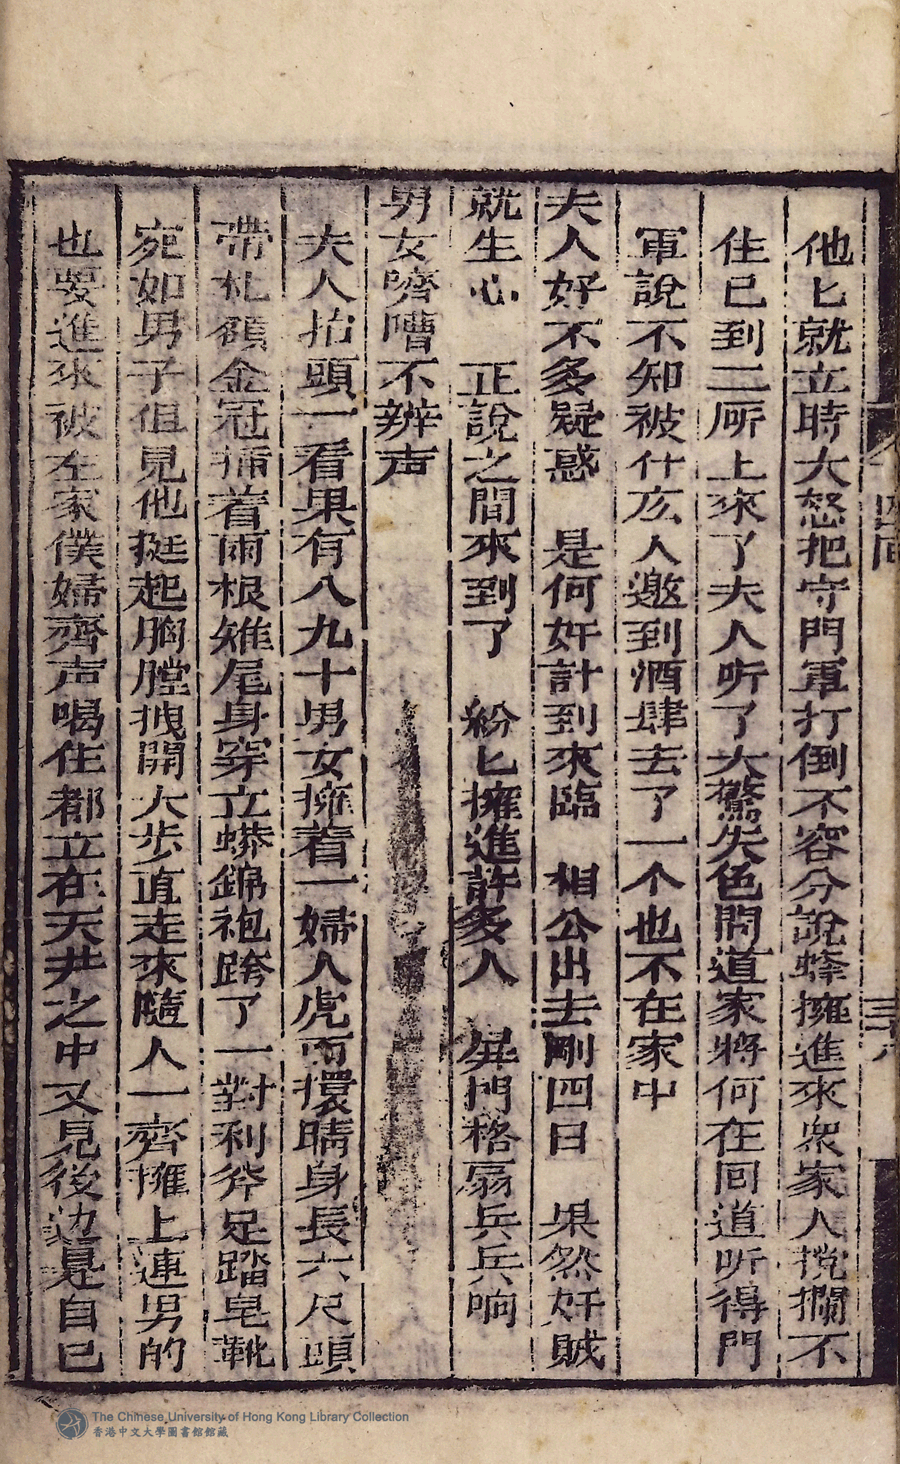 四回
三十八
他匕就立時大怒把守門軍打倒不容分說蜂擁進來衆家人攔不
住已到二厛上來了夫人听了大驚失色問道家將何在囘道听得門
軍說不知被什么人邀到酒肆去了一个也不在家中
夫人好不多疑惑 是何奸計到來臨 相公出去剛四日 果然奸賊
就生心 正說之間來到了 紛匕擁進許多人 屏門格扇乒乓响
男女嚌嘈不辨声
夫人抬頭一看果有八九十男女擁着一婦人虎面環睛身長六尺頭
帶札額金冠插着兩根雉尾身穿立蟒錦袍跨了一對利斧足踏皂靴
宛如男子但見他挺起胸膛拽開大步直走來隨人一齊擁上連男的
也要進來被左家僕婦齊声喝住都立在天井之中又見後边是自已
The Chinese University of Hong Kong Library Collection
香港中文大學圖書館館藏